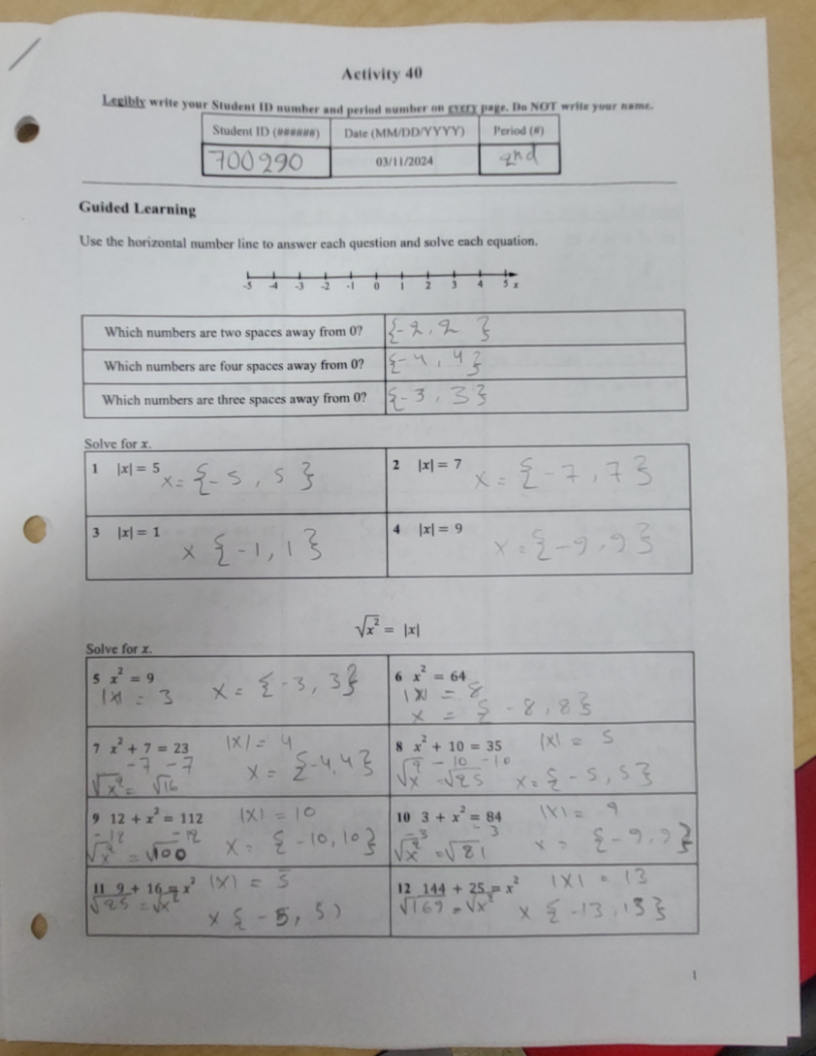 Activity 40
Legibly write your Student ID number and period number on every page. Do NOT write your name.
Student ID (######) Date (MM/DD/YYYY) Period (#)
700290 03/11/2024 2nd
Guided Learning
Use the horizontal number line to answer each question and solve each equation.
-5 -4 -3 -2 -1 0 1 2 3 4 5 x
Which numbers are two spaces away from 0? {-2, 2 }
Which numbers are four spaces away from 0? {-4, 4}
Which numbers are three spaces away from 0? {-3, 3}
Solve for x.
1 |x| = 5 x = {-5, 5 }
2 |x| = 7 x = {-7, 7}
3 |x| = 1 x {-1, 1}
4 |x| = 9 x = {-9, 9}
√x² = |x|
Solve for x.
5 x² = 9
|x| = 3 x = {-3, 3}
6 x² = 64
|x| = 8
x = {-8, 8}
7 x² + 7 = 23 |x| = 4
-7 -7 x = {-4, 4}
√x² = √16
8 x² + 10 = 35 |x| = 5
-10 -10
√x² = √25 x = {-5, 5}
9 12 + x² = 112 |x| = 10
-12 -12
√x² = √100 x = {-10, 10}
10 3 + x² = 84 |x| = 9
-3 3
√x² = √81 x = {-9, 9}
11 9 + 16 = x² |x| = 5
√25 = √x²
x { -5, 5)
12 144 + 25 = x² |x| = 13
√169 = √x² x {-13, 13}
1